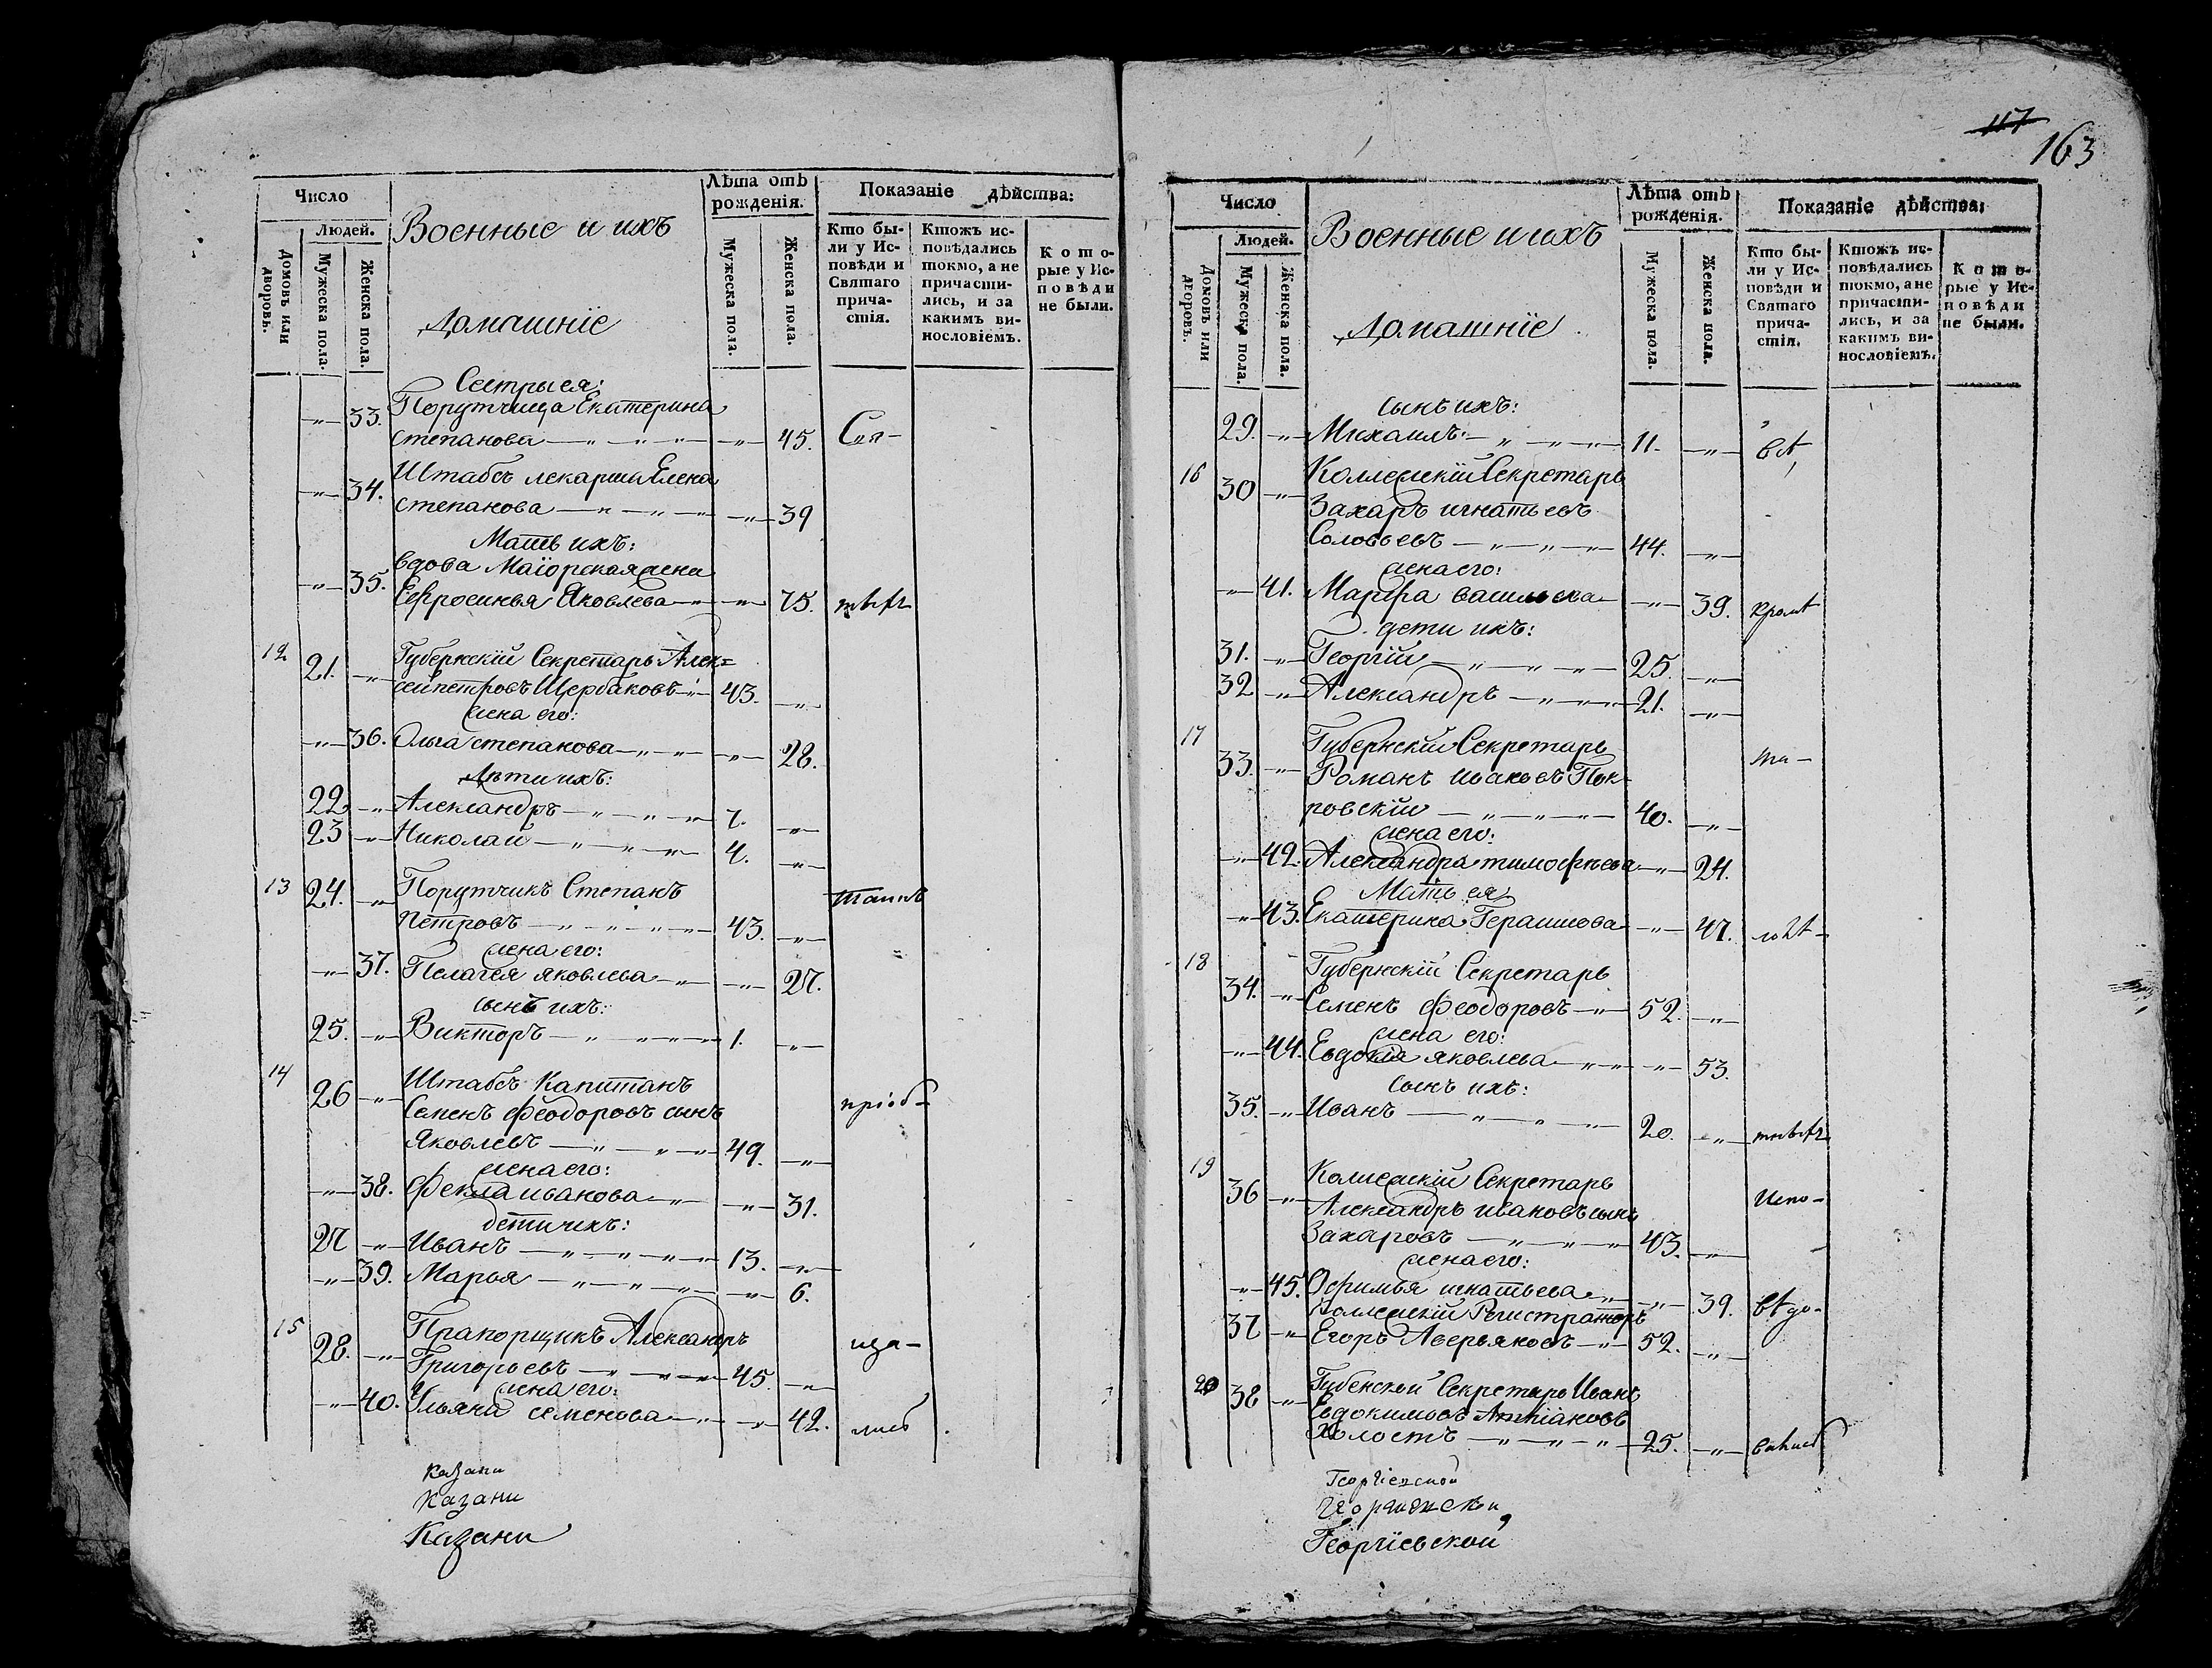 Число
Людей.
Домовъ или дворовъ.
Мужеска пола.
Женска пола.
Военные и ихъ
Домашніе
Лѣта отъ рожденія.
Мужеска пола.
Женска пола.
Показаніе дѣйства:
Кто бы-
ли у Ис-
повѣди и
Святаго
прича-
стія.
Ктожъ ис-
повѣдались
токмо, а не
причасти-
лись, и за
какимъ ви-
нословіемъ.
Кото-
рые у Ис-
повѣди
не были.
Сестры ея:
33. Порутчица Екатерина
Степанова 45.
34. Штабсъ лекарша Елена
Степанова 39
Мать ихъ:
35. вдова Маіорская жена
Ефросинья Яковлева 75.
12 21. Губернскій Секретарь Алек=
сей петровъ Щербаковъ 43.
жена его:
36. Ольга степанова 28.
Дѣти ихъ:
22 Александръ 7.
23 Николай 4.
13 24. Порутчикъ Степанъ
Петровъ 43.
жена его:
37. Пелагея яковлева 27.
сынъ ихъ:
25. Викторъ 1.
14 26 Штабсъ Капитанъ пріоб-
Семенъ Феодоровъ сынъ
Яковлевъ 49.
жена его:
38. Фекла иванова 31.
дети ихъ:
27 Иванъ 13.
39. Марья 6.
15 28. Прапорщикъ Александръ ща-
Григорьевъ 45.
жена его:
40. Ульяна семенова 42. лись
Казани
Казани
Казани
117
163
Число
Людей.
Домовъ или дворовъ.
Мужеска пола.
Женска пола.
Военные и ихъ
Домашніе
Лѣта отъ рожденія.
Мужеска пола.
Женска пола.
Показаніе дѣйства:
Кто бы-
ли у Ис-
повѣди и
Святаго
прича-
стія.
Ктожъ ис-
повѣдались
токмо, а не
причасти-
лись, и за
какимъ ви-
нословіемъ.
Кото-
рые у Ис-
повѣди
не были.
сынъ ихъ:
29. Михаилъ 11. вѣ
16 30 Коллежскій Секретарь
Захаръ игнатьевъ
Соловьевъ 44.
жена его:
41. Марфа васильева 39. кромѣ
дети ихъ:
31. Георгій 25.
32 Александръ 21.
17 33. Губернскій Секретарь
Романъ ивановъ Пок-
ровскій 40.
жена его:
42. Александра тимофѣева 24.
Мать ея
43. Екатерина Герасимова 47.
18 34. Губернскій Секретарь
Семенъ Феодоровъ 52.
жена его:
44. Евдокія яковлева 53.
сынъ ихъ:
35. Иванъ 20.
19 36 Коллежскій Секретарь Испо-
Александръ ивановъ сынъ
Захаровъ 43.
жена его:
45. Офимья игнатьева 39. вѣдо-
37 Коллежскій Регистраторъ
Егоръ Аверьяновъ 52.
20 38 Губенской Секретарь Иванъ
Евдокимовъ
Холостъ 25.
Георгіевской
Георгіевской
Георгіевской